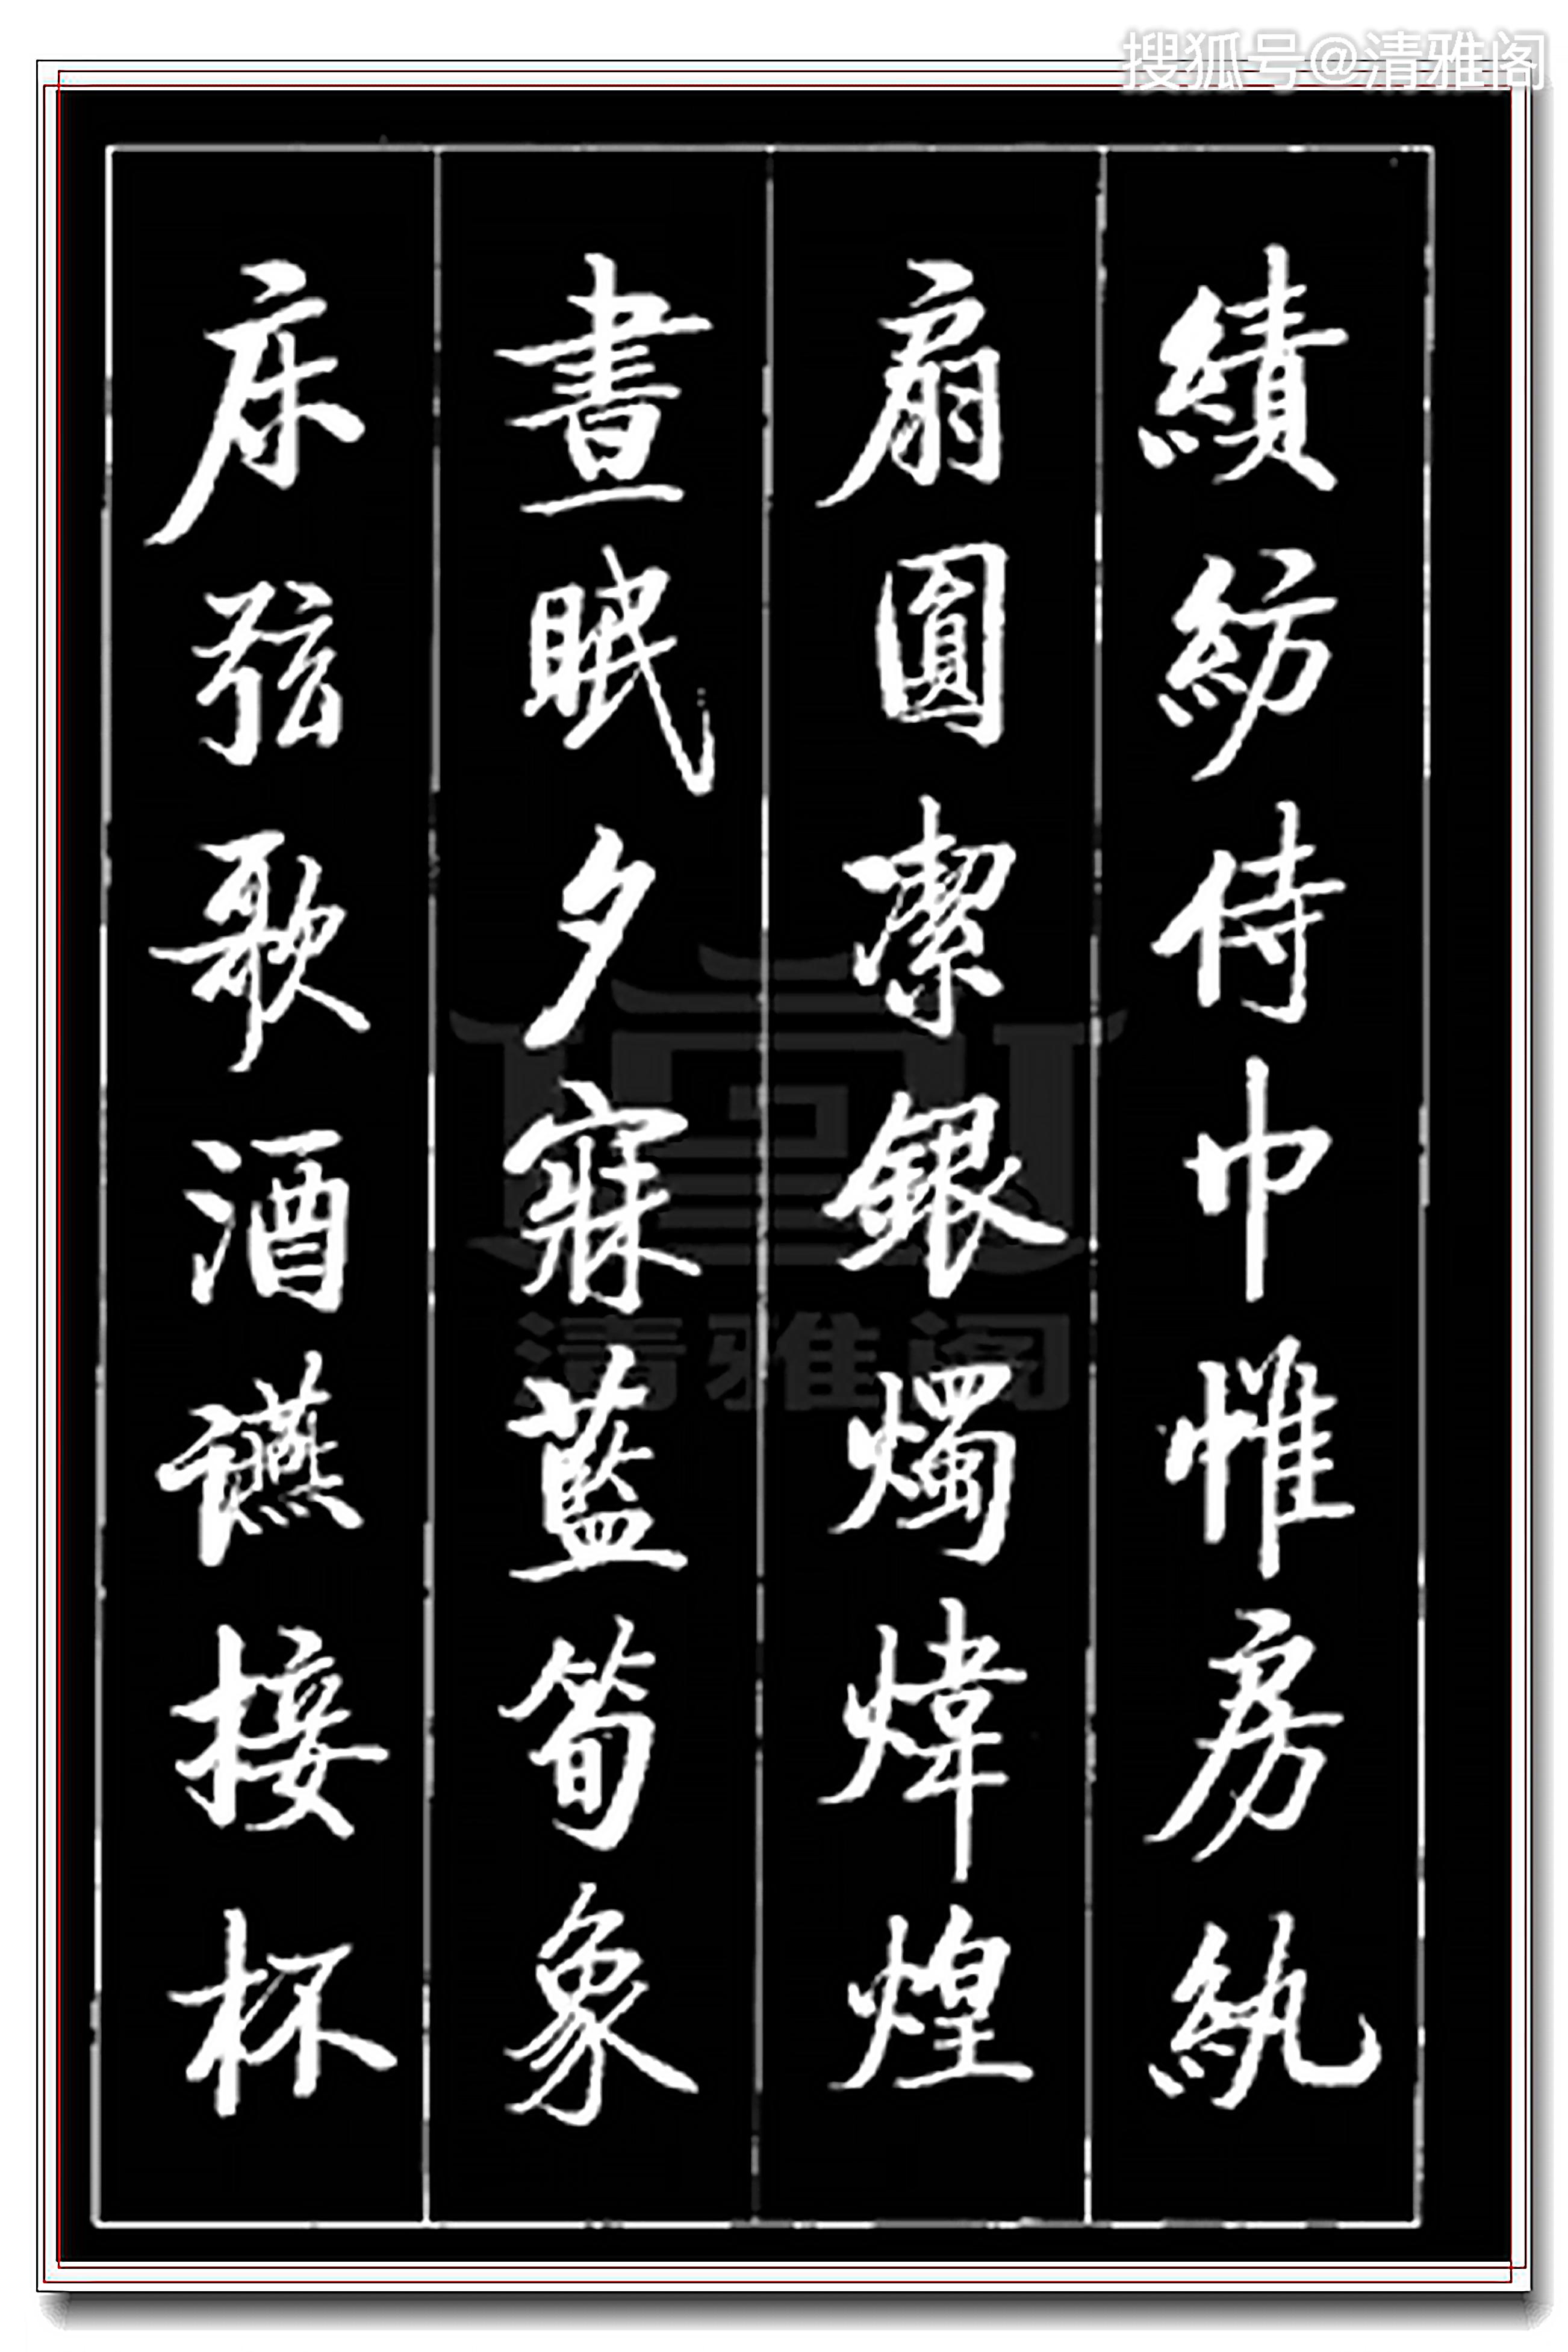 搜狐号@清雅阁
績紡侍巾帷房紈
扇圓潔銀燭煒煌
晝眠夕寐藍筍象
床弦歌酒讌接杯
清雅阁